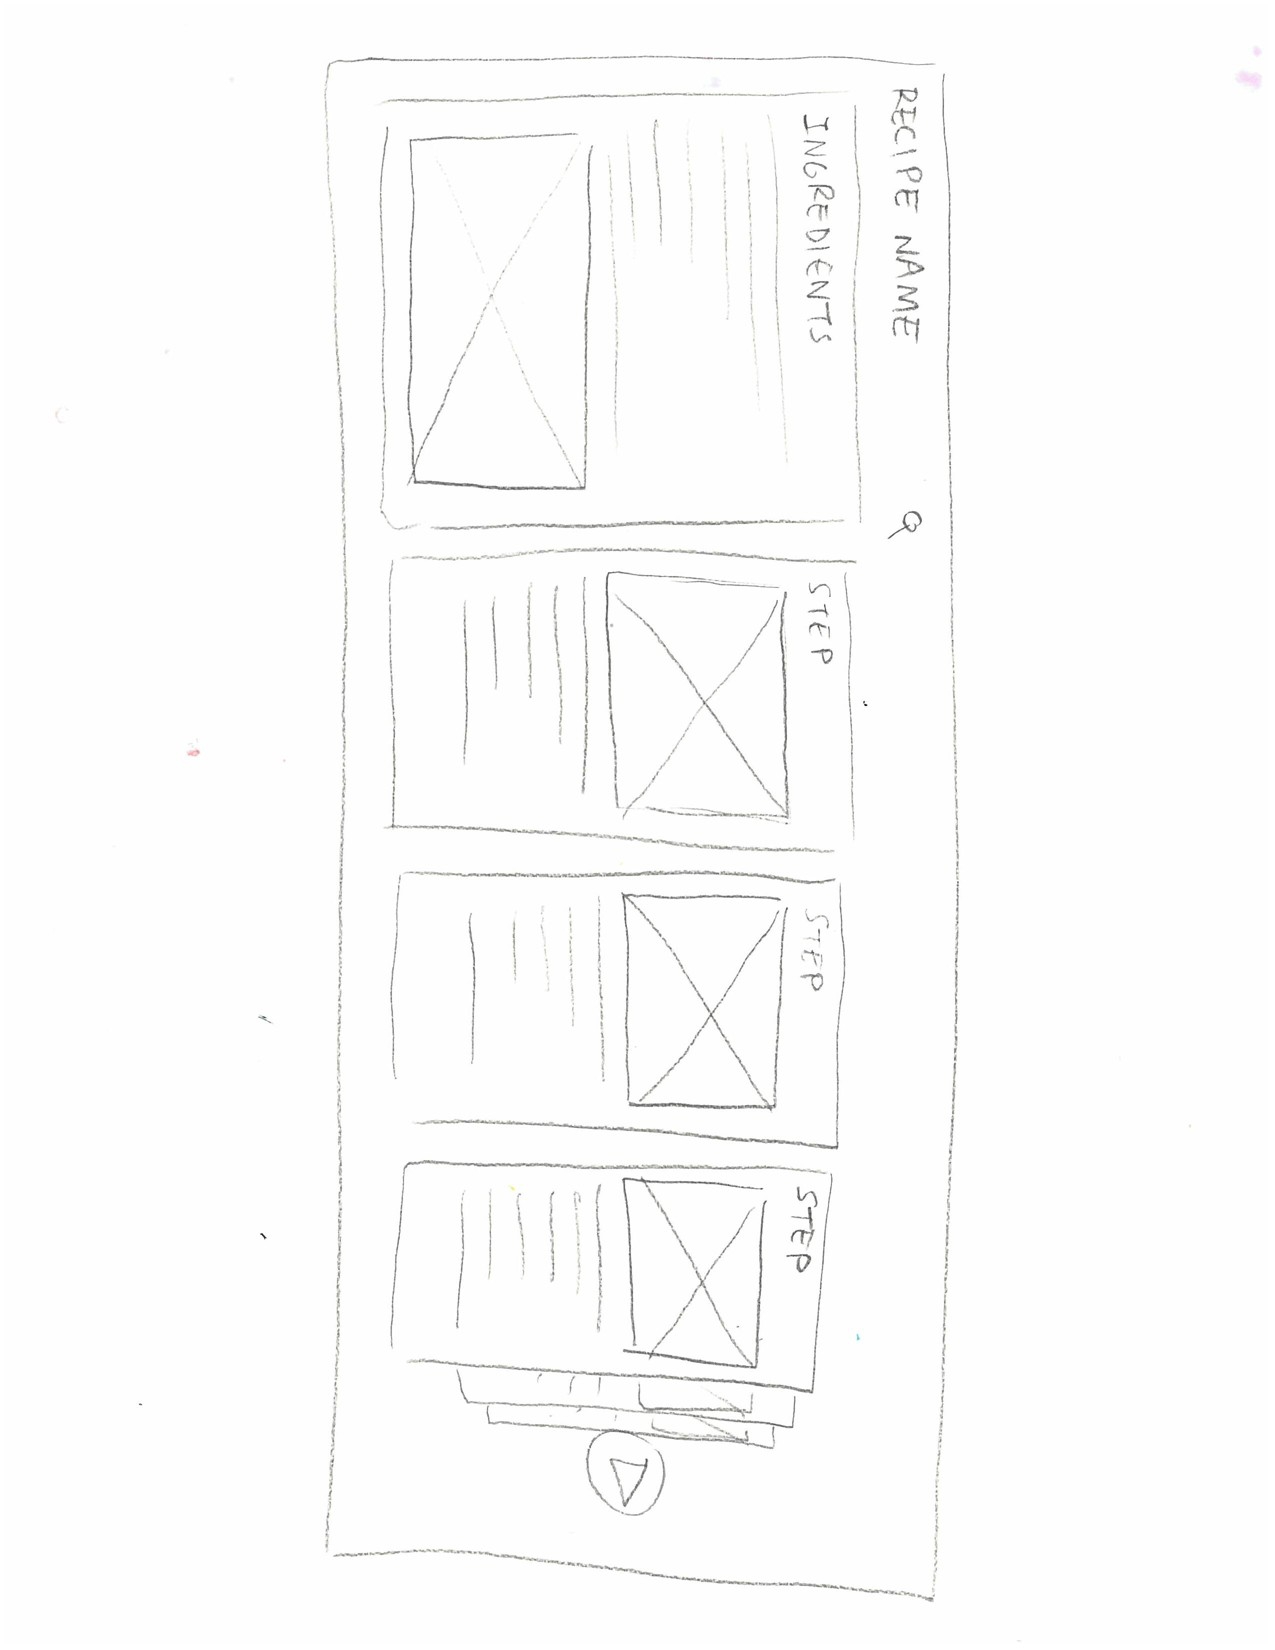 RECIPE NAME
INGREDIENTS
STEP
STEP
STEP